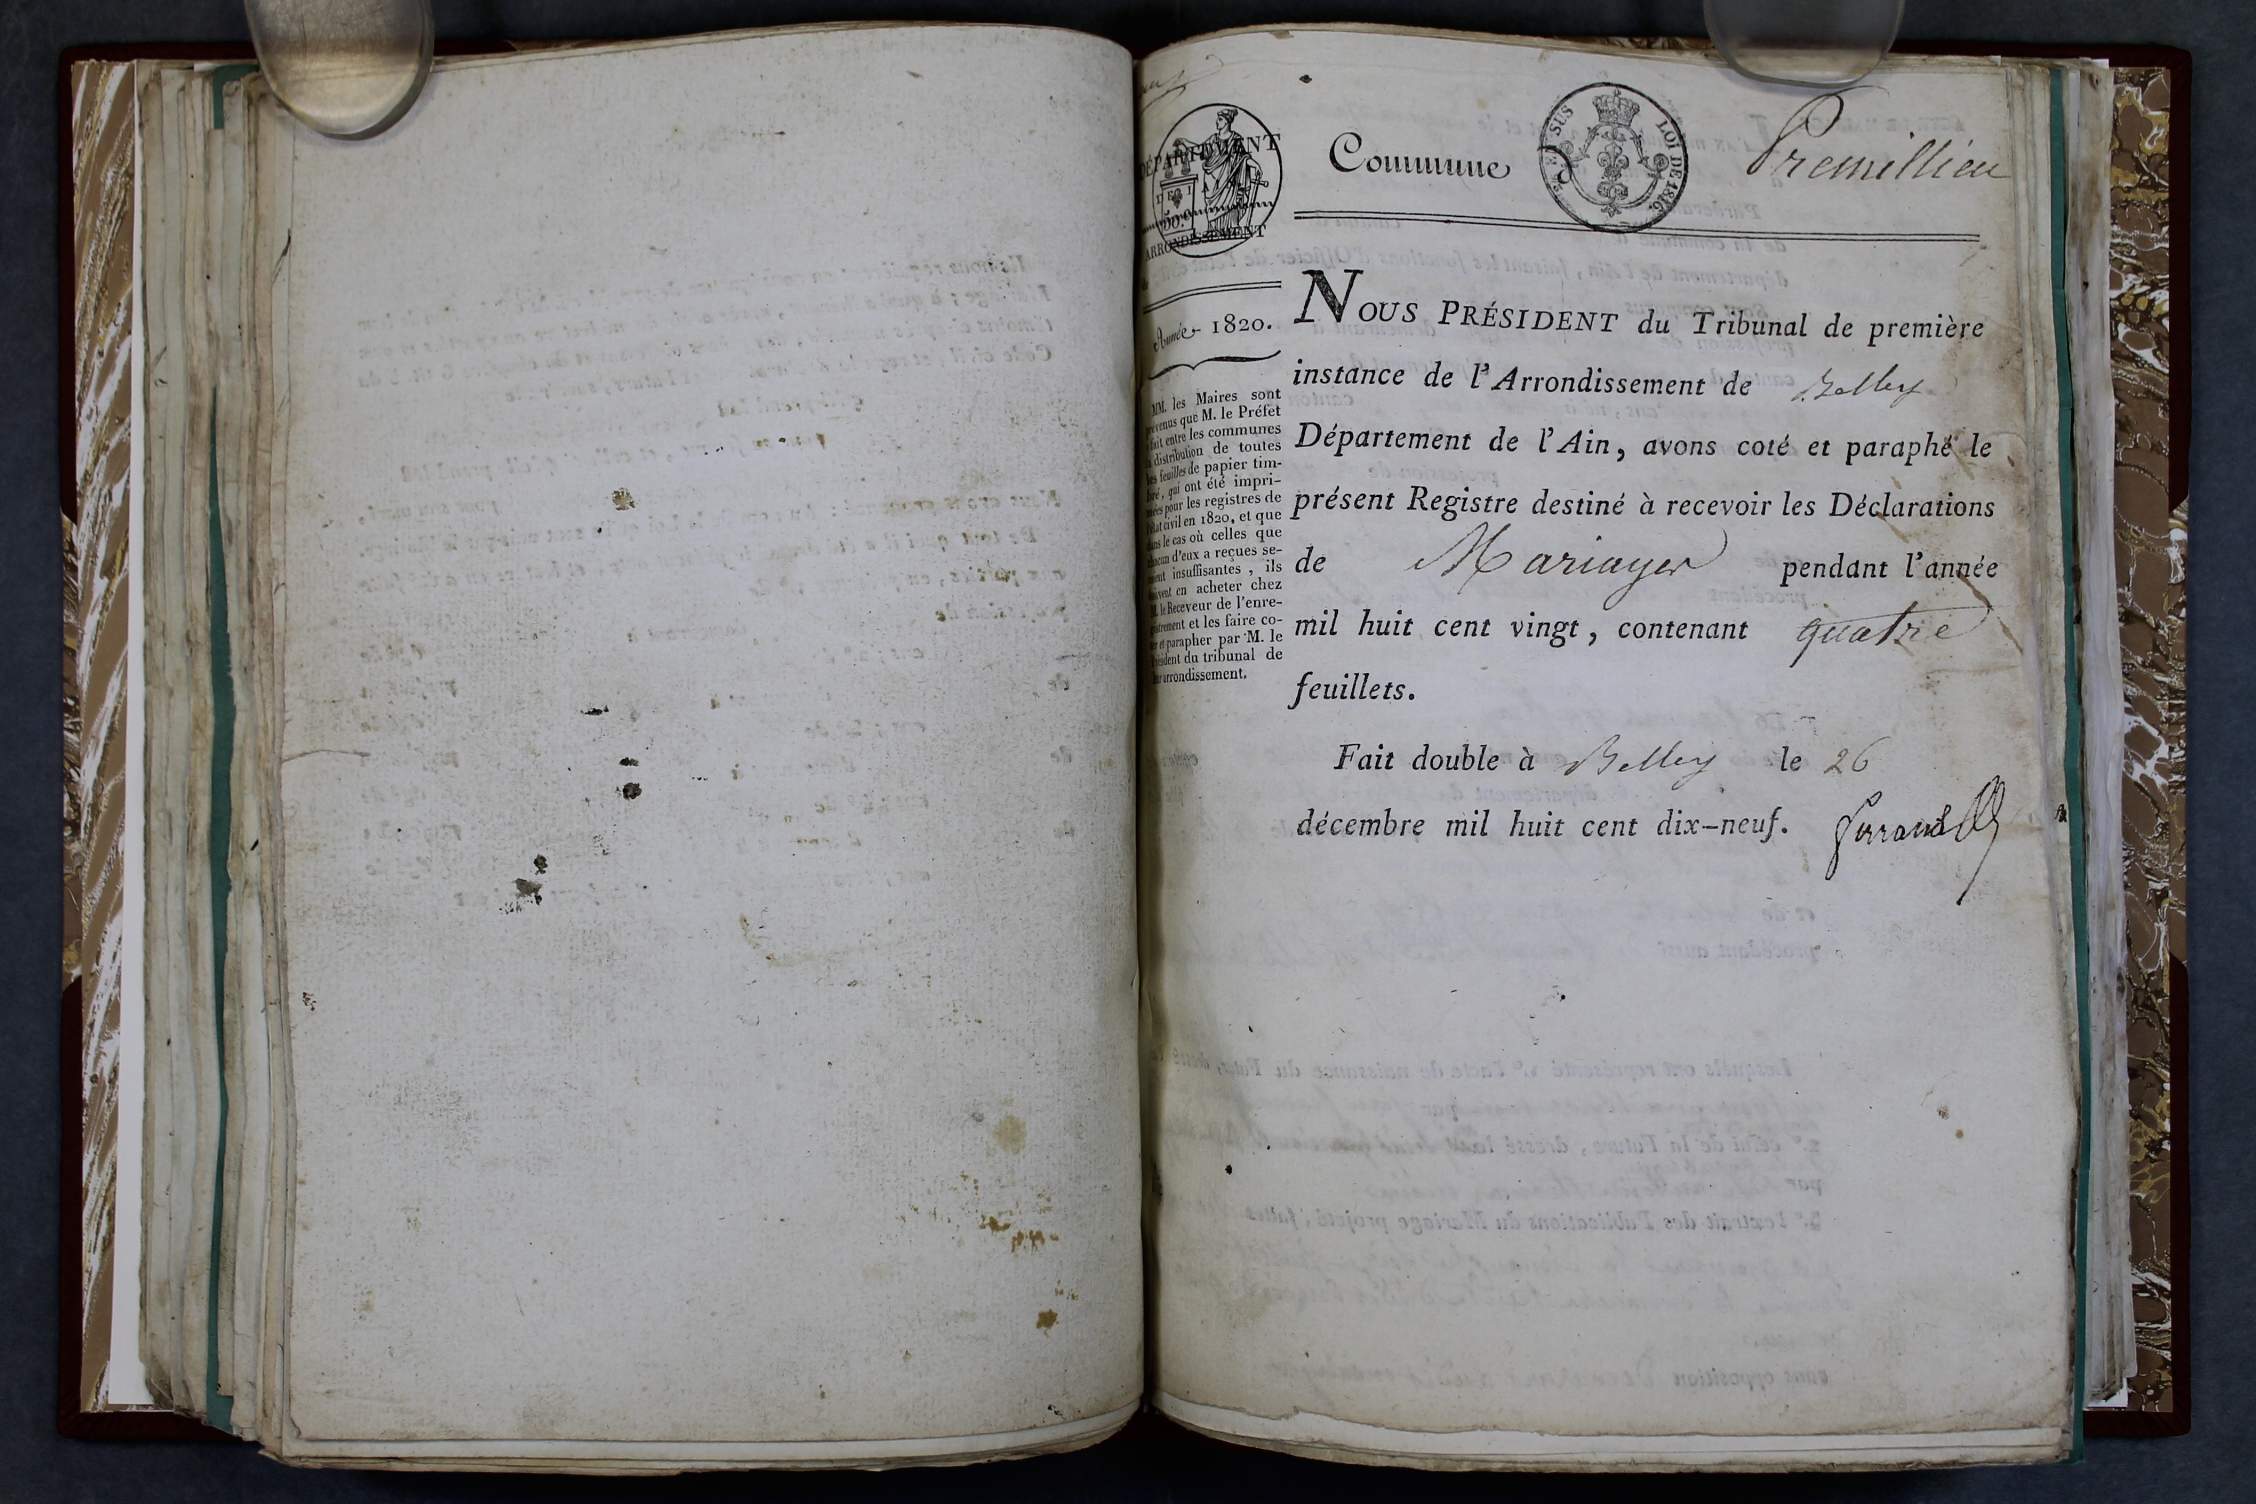 DÉPARTEMENT
ARRONDISSEMENT
Année 1820.
MM. les Maires sont
prévenus que M. le Préfet
a fait entre les communes
la distribution de toutes
les feuilles de papier tim-
bré, qui ont été impri-
mées pour les registres de
l'état civil en 1820, et que
dans le cas où celles que
chacun d'eux a reçues se-
roient insuffisantes, ils
peuvent en acheter chez
M. le Receveur de l'enre-
gistrement et les faire co-
ter et parapher par M. le
Président du tribunal de
leur arrondissement.
Commune Premillieu
SUS LOI DE 1816.
NOUS PRÉSIDENT du Tribunal de première
instance de l'Arrondissement de Belley
Département de l'Ain, avons coté et paraphé le
présent Registre destiné à recevoir les Déclarations
de Mariages pendant l'année
mil huit cent vingt, contenant quatre
feuillets.
Fait double à Belley le 26
décembre mil huit cent dix-neuf.